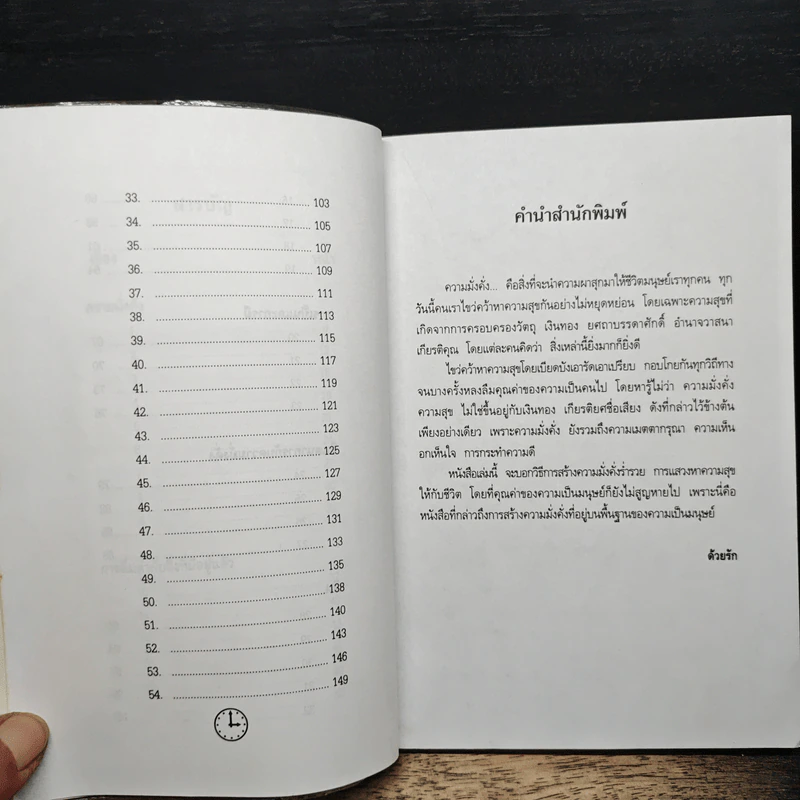 33. 103
34. 105
35. 107
36. 109
37. 111
38. 113
39. 115
40. 117
41. 119
42. 121
43. 123
44. 125
45. 127
46. 129
47. 131
48. 133
49. 135
50. 138
51. 140
52. 143
53. 146
54. 149
คำนำสำนักพิมพ์
ความมั่งคั่ง... คือสิ่งที่จะนำความผาสุกมาให้ชีวิตมนุษย์เราทุกคน ทุก
วันนี้คนเราไขว่คว้าหาความสุขกันอย่างไม่หยุดหย่อน โดยเฉพาะความสุขที่
เกิดจากการครอบครองวัตถุ เงินทอง ยศถาบรรดาศักดิ์ อำนาจวาสนา
เกียรติคุณ โดยแต่ละคนคิดว่า สิ่งเหล่านี้ยิ่งมากก็ยิ่งดี
ไขว่คว้าหาความสุขโดยเบียดบังเอารัดเอาเปรียบ กอบโกยกันทุกวิถีทาง
จนบางครั้งหลงลืมคุณค่าของความเป็นคนไป โดยหารู้ไม่ว่า ความมั่งคั่ง
ความสุข ไม่ใช่ขึ้นอยู่กับเงินทอง เกียรติยศชื่อเสียง ดังที่กล่าวไว้ข้างต้น
เพียงอย่างเดียว เพราะความมั่งคั่ง ยังรวมถึงความเมตตากรุณา ความเห็น
อกเห็นใจ การกระทำความดี
หนังสือเล่มนี้ จะบอกวิธีการสร้างความมั่งคั่งร่ำรวย การแสวงหาความสุข
ให้กับชีวิต โดยที่คุณค่าของความเป็นมนุษย์ก็ยังไม่สูญหายไป เพราะนี่คือ
หนังสือที่กล่าวถึงการสร้างความมั่งคั่งที่อยู่บนพื้นฐานของความเป็นมนุษย์
ด้วยรัก